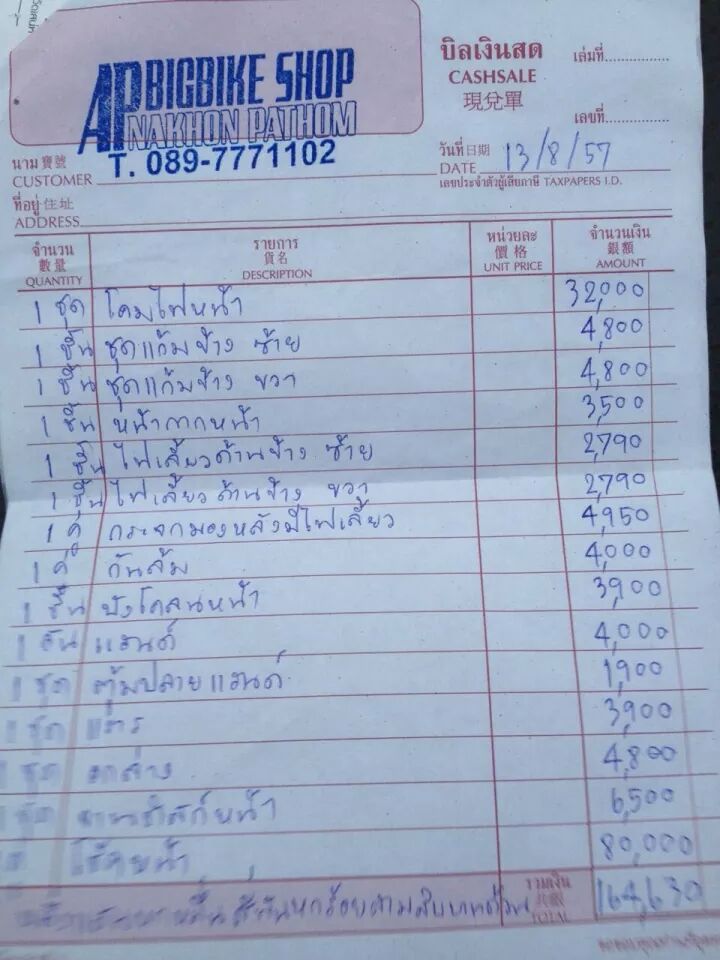 AP BIGBIKE SHOP
NAKHON PATHOM
T. 089-7771102
บิลเงินสด
CASHSALE
現兌單
เล่มที่
เลขที่
นาม 寶號
CUSTOMER
วันที่ 日期
DATE 13/8/57
เลขประจำตัวผู้เสียภาษี TAXPAPERS I.D.
ที่อยู่ 住址
ADDRESS
จำนวน 數量 QUANTITY
รายการ 貨名 DESCRIPTION
หน่วยละ 價格 UNIT PRICE
จำนวนเงิน 銀額 AMOUNT
1 ชุด โคมไฟหน้า 32,000
1 ชิ้น ชุดแก้มข้าง ซ้าย 4,800
1 ชิ้น ชุดแก้มข้าง ขวา 4,800
1 ชิ้น หน้ากากหน้า 3,500
1 ชิ้น ไฟเลี้ยวด้านข้าง ซ้าย 2,790
1 ชิ้น ไฟเลี้ยวด้านข้าง ขวา 2,790
1 คู่ กระจกมองหลังมีไฟเลี้ยว 4,950
1 คู่ กันล้ม 4,000
1 ชิ้น บังโคลนหน้า 3,900
1 อัน แฮนด์ 4,000
1 ชุด ตุ้มปลายแฮนด์ 1,900
1 ชุด แตร 3,900
1 ชุด อกล่าง 4,800
1 ชุด จานดิสก์หน้า 6,500
โช๊คหน้า 80,000
หมื่นสี่พันหกร้อยสามสิบบาทถ้วน รวมเงิน TOTAL 164,630